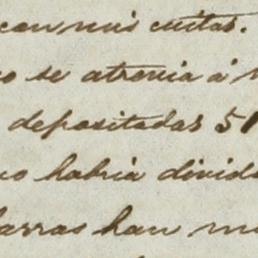 con mis cuitas.
o se atrevia á
depositadas 51
o habria divid
barras han m